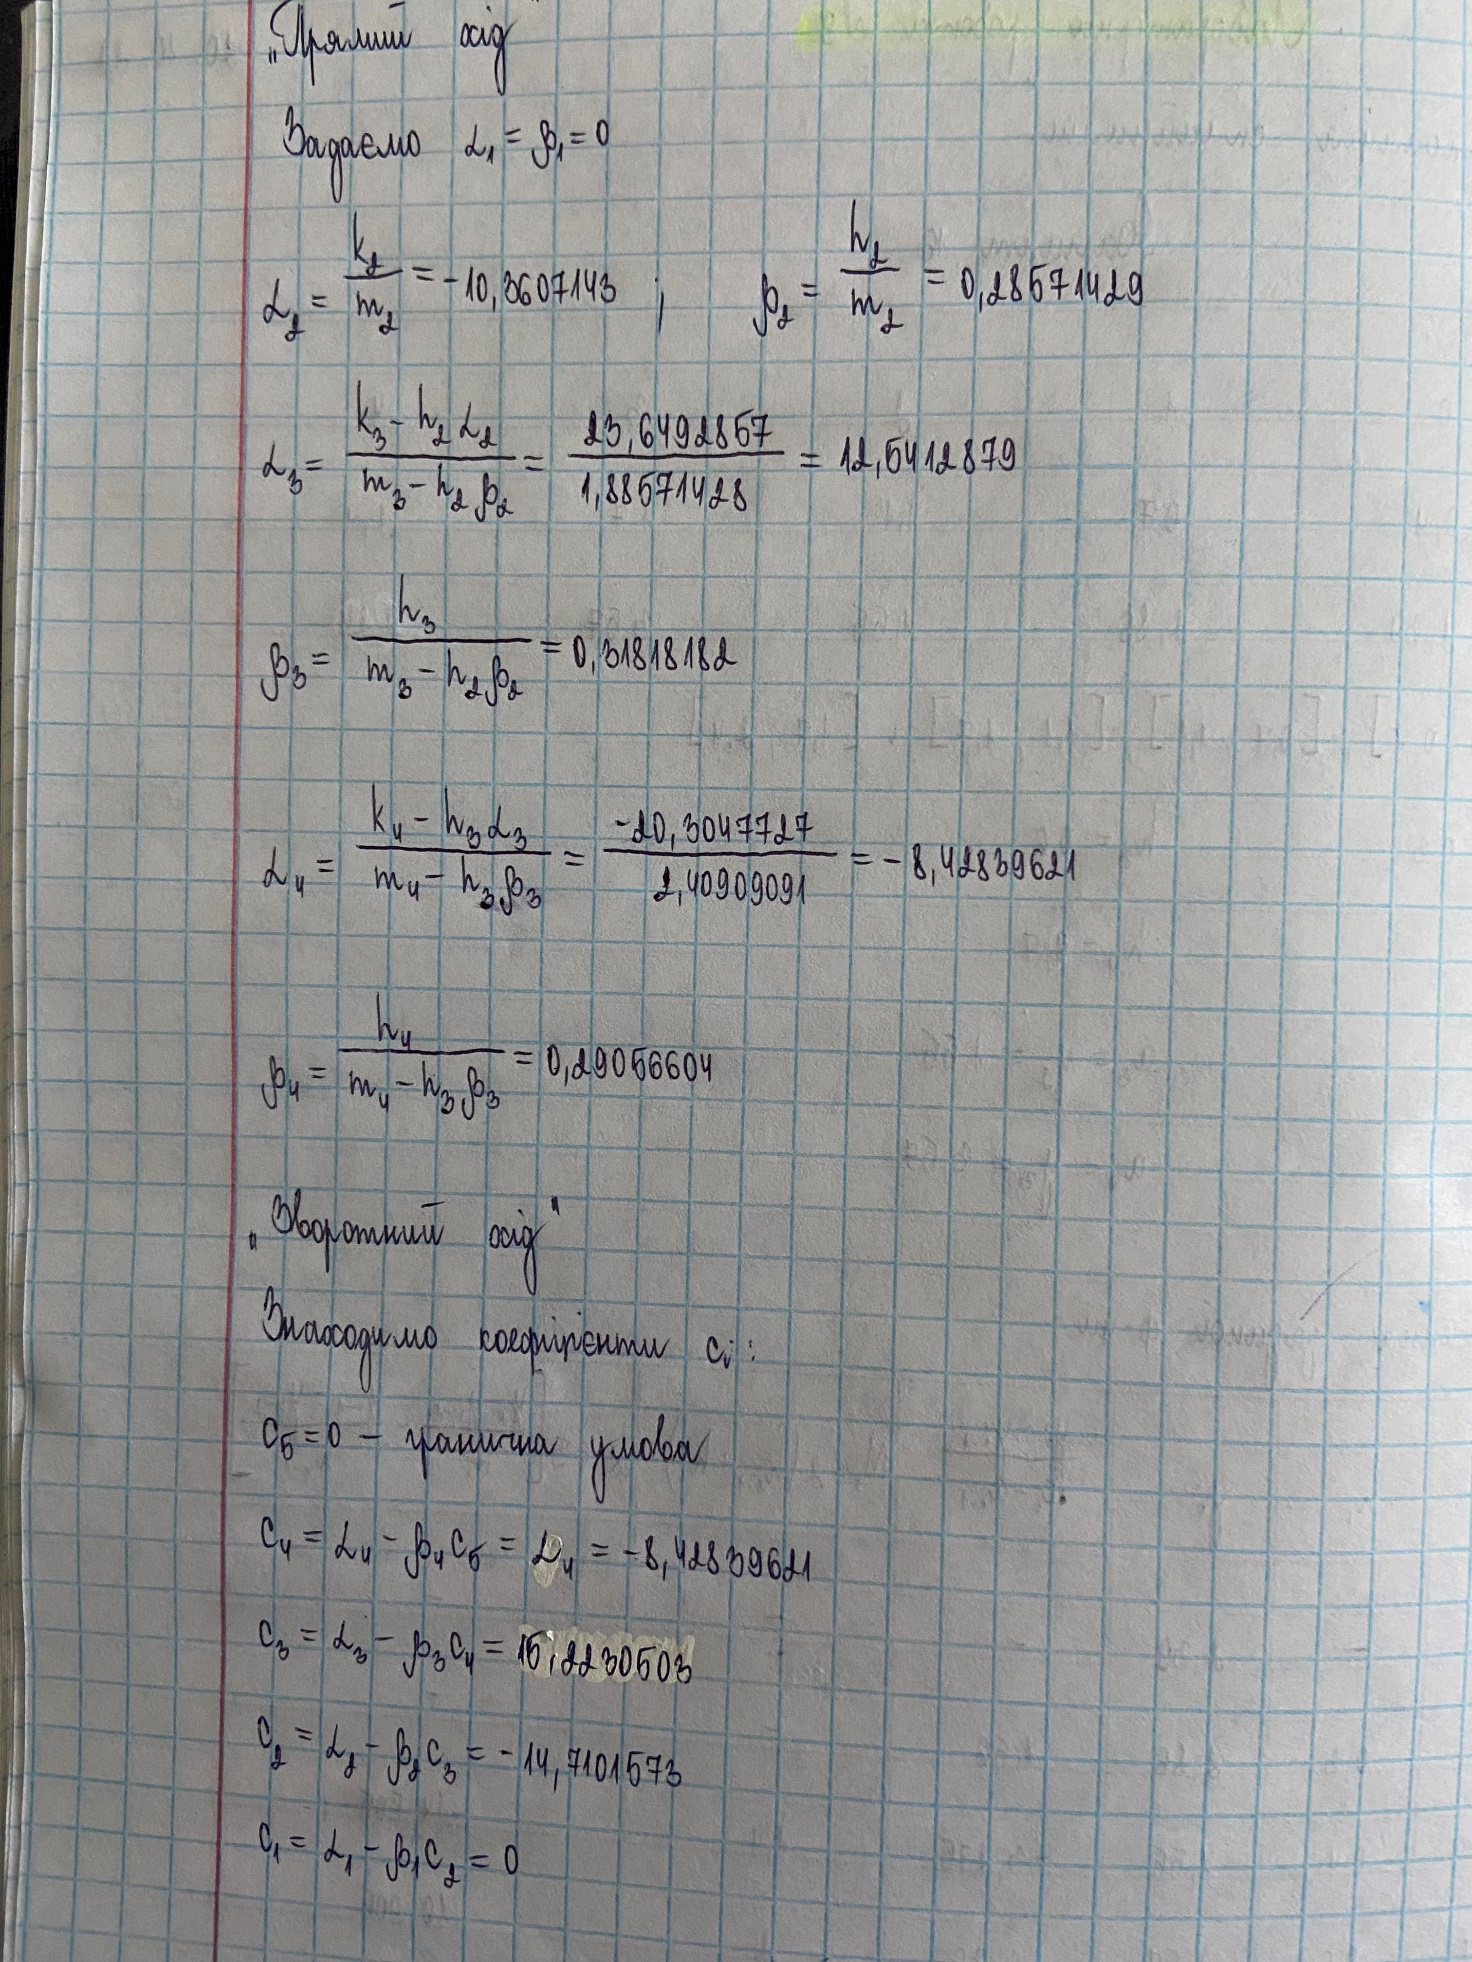 „Прямий хід"
Задаємо α₁ = β₁ = 0
α₂ = k₂/m₂ = -10,3607143 ; β₂ = h₂/m₂ = 0,28571429
α₃ = (k₃ - h₂α₂)/(m₃ - h₂β₂) = 23,6492857/1,88571428 = 12,5412879
β₃ = h₃/(m₃ - h₂β₂) = 0,31818182
α₄ = (k₄ - h₃α₃)/(m₄ - h₃β₃) = -20,3047727/2,40909091 = -8,42839621
β₄ = h₄/(m₄ - h₃β₃) = 0,29056604
„Зворотний хід"
Знаходимо коефіцієнти cᵢ:
c₅ = 0 – гранична умова
c₄ = α₄ - β₄c₅ = α₄ = -8,42839621
c₃ = α₃ - β₃c₄ = 15,2230503
c₂ = α₂ - β₂c₃ = -14,7101573
c₁ = α₁ - β₁c₂ = 0